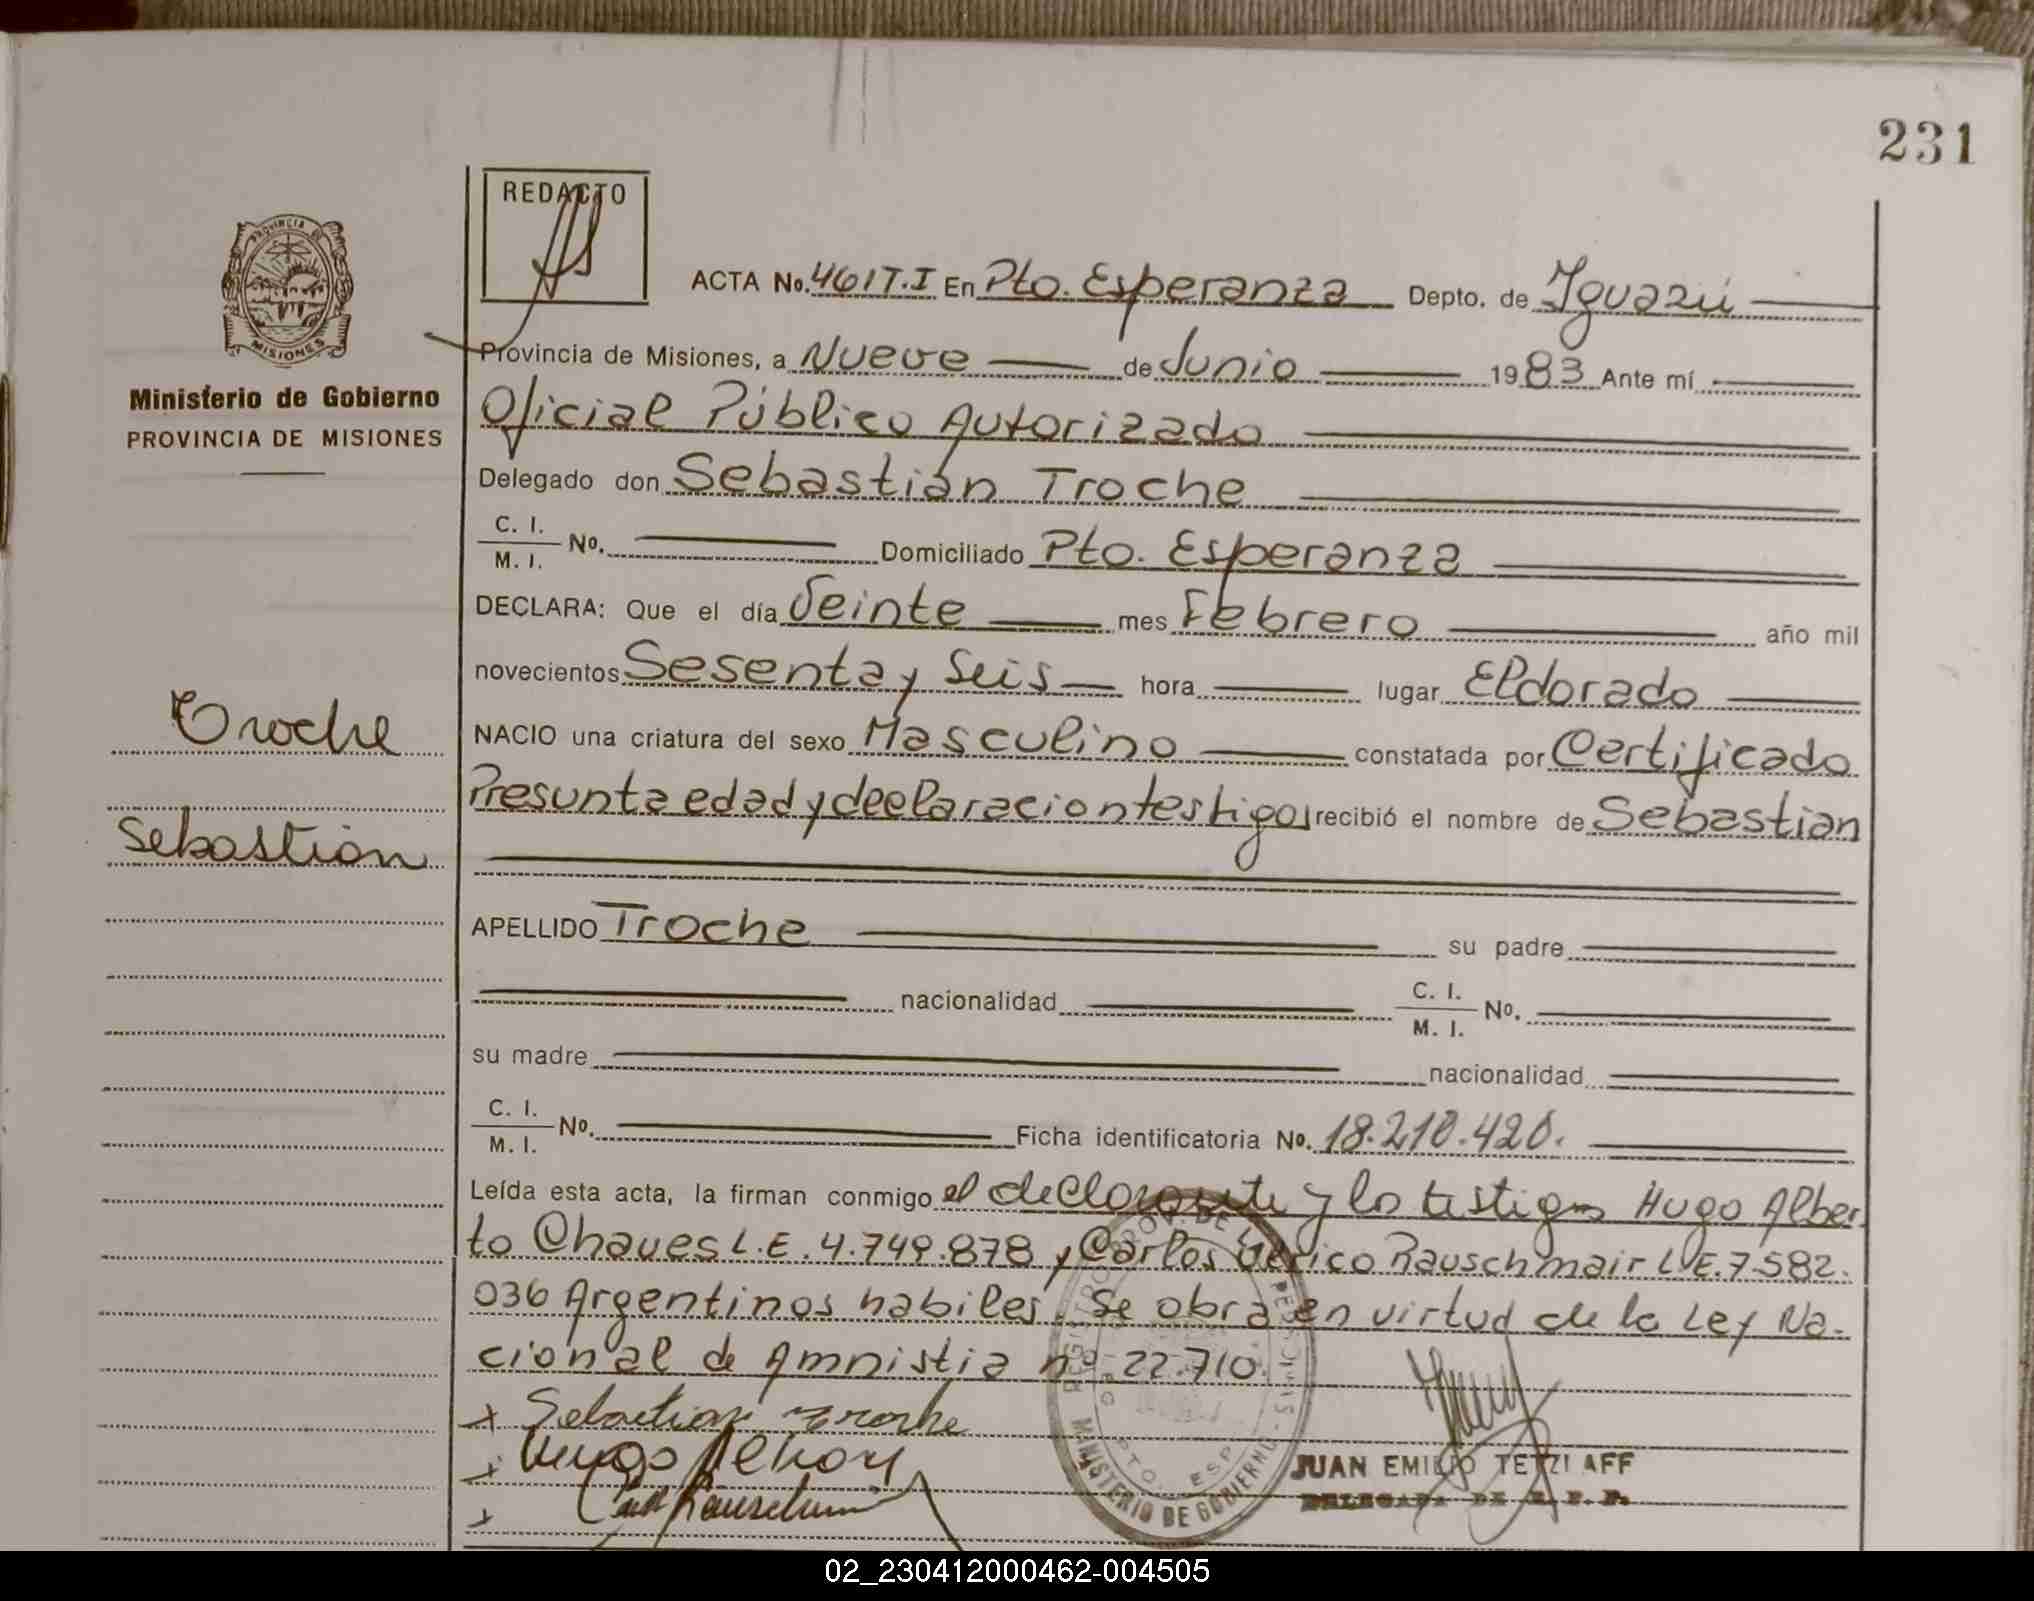 231
REDACTO
ACTA No. 461T.I En Pto. Esperanza Depto. de Iguazú
Provincia de Misiones, a Nueve de Junio 1983 Ante mí
Ministerio de Gobierno
PROVINCIA DE MISIONES
Oficial Público Autorizado
Delegado don Sebastián Troche
C. I. / M. I. No. Domiciliado Pto. Esperanza
DECLARA: Que el día Veinte mes Febrero año mil
novecientos Sesenta y Seis hora lugar Eldorado
Troche
NACIO una criatura del sexo Masculino constatada por Certificado
Presunta edad y declaracion testigos recibió el nombre de Sebastian
Sebastián
APELLIDO Troche su padre
nacionalidad C. I. / M. I. No.
su madre nacionalidad
C. I. / M. I. No. Ficha identificatoria No. 18.210.420.
Leída esta acta, la firman conmigo el declarante y los testigos Hugo Alber
to Chaves L.E. 4.749.878 y Carlos Rauschmair L.E. 7.582.
036 Argentinos habiles. Se obra en virtud de la Ley Na-
cional de Amnistia nº 22.710.
x Sebastian Troche
x Hugo
x
MINISTERIO DE GOBIERNO
PTO. ESP.
JUAN EMILIO TETZLAFF
02_230412000462-004505